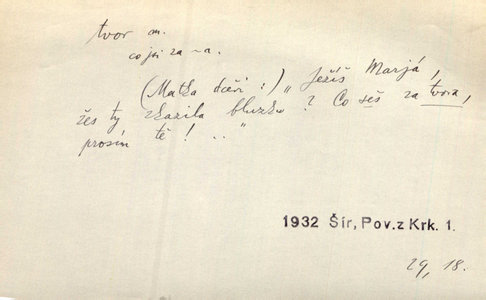 tvor m.
co jsi za ~a.
(Matka dceři:) „Ježíš Marjá,
žes ty zkazila bluzku? Co seš za tvora,
prosím tě! .."
1932 Šír, Pov. z Krk. 1.
29, 18.